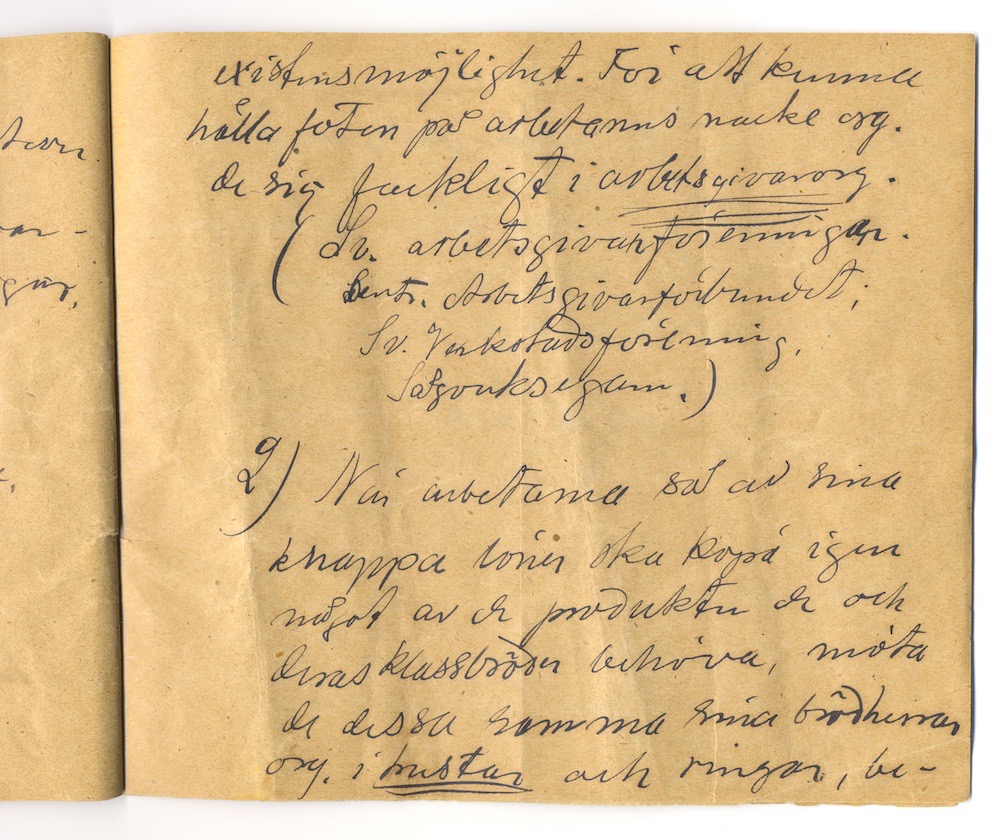 existensmöjlighet. För att kunna
hålla foten på arbetarnas nacke org.
de sig fackligt i arbetsgivarorg.
(Sv. arbetsgivarföreningen.
Centr. Arbetsgivarförbundet,
Sv. Verkstadsförening,
Sågverksegarn.)
2) När arbetarna så av sina
knappa löner ska köpa igen
något av de produkter de och
deras klassbröder behöva, möta
de dessa samma sina brödherrar
org. i trustar och ringar, be-
tern
ar-
gar,